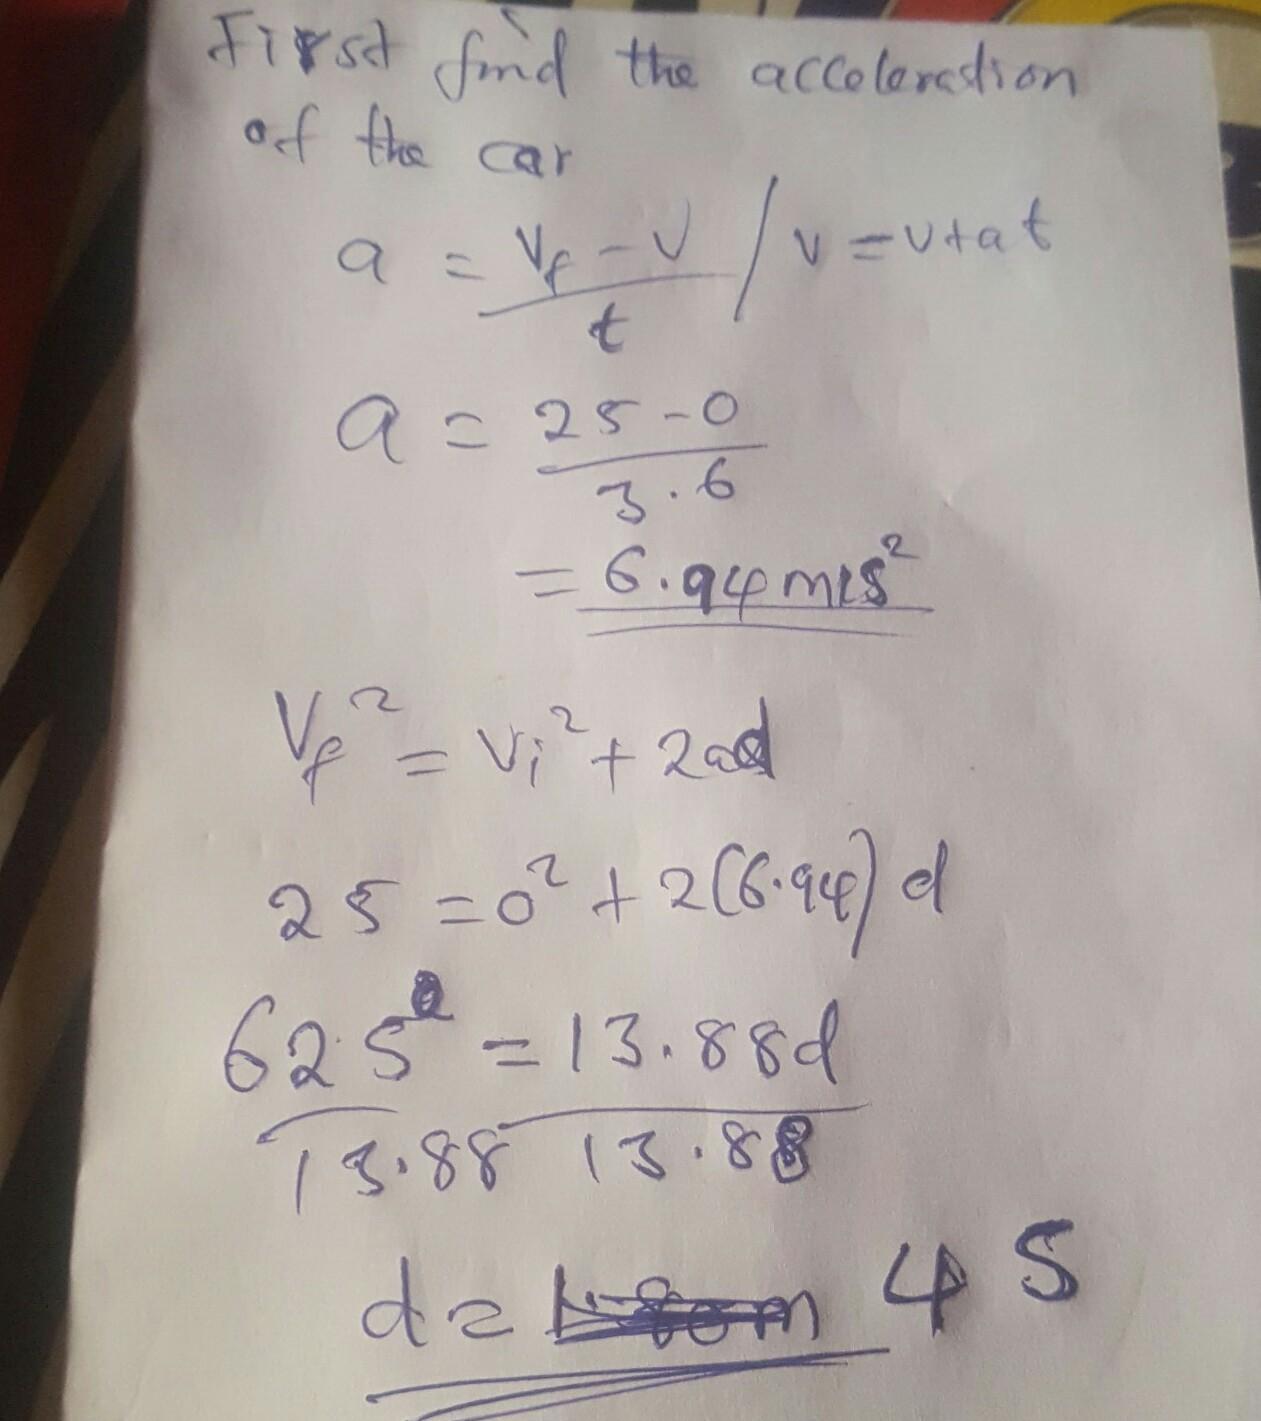 First find the acceleration
of the car
a = Vf - U / v = u + at
t
a = 25 - 0
3.6
= 6.94 m/s²
Vf² = Vi² + 2ad
25 = 0² + 2(6.94) d
625 = 13.88d
13.88 13.88
d = 45